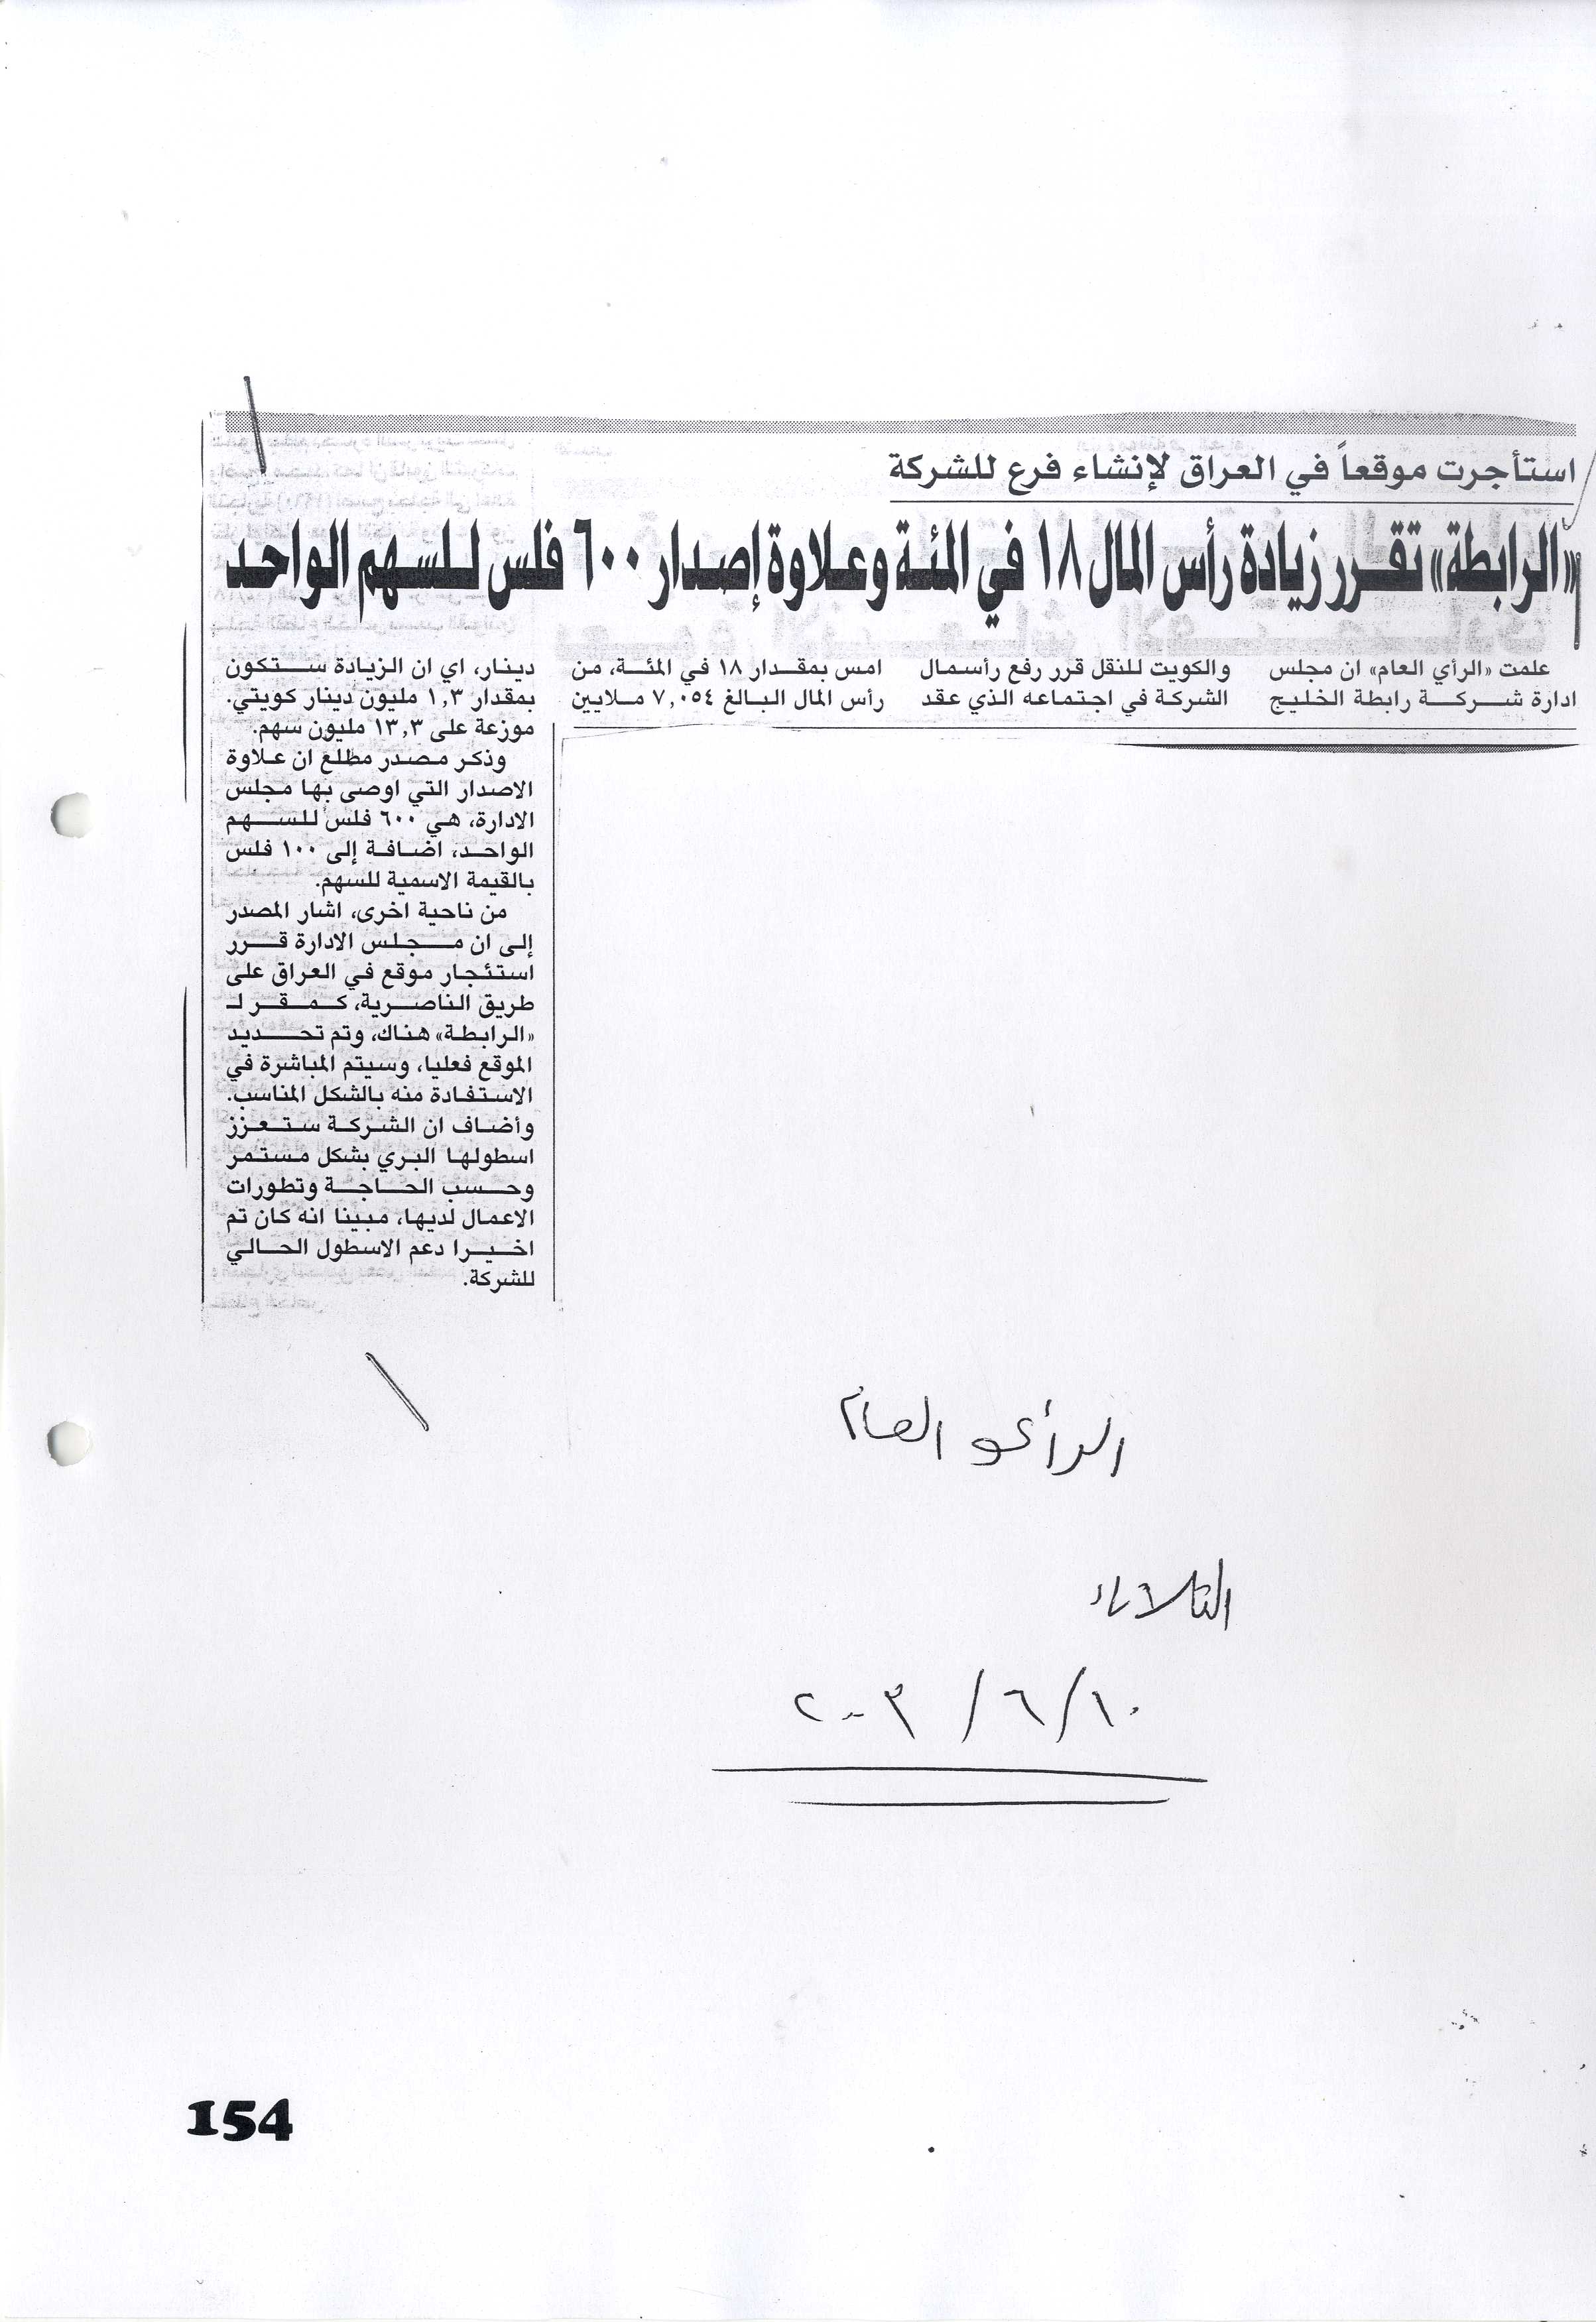 استأجرت موقعاً في العراق لإنشاء فرع للشركة
«الرابطة» تقرر زيادة رأس المال ١٨ في المئة وعلاوة إصدار ٦٠٠ فلس للسهم الواحد
علمت «الرأي العام» ان مجلس
ادارة شركة رابطة الخليج
والكويت للنقل قرر رفع رأسمال
الشركة في اجتماعه الذي عقد
امس بمقدار ١٨ في المئة، من
رأس المال البالغ ٧,٠٥٤ ملايين
دينار، اي ان الزيادة ستكون
بمقدار ١,٣ مليون دينار كويتي.
موزعة على ١٣,٣ مليون سهم.
وذكر مصدر مطلع ان علاوة
الاصدار التي اوصى بها مجلس
الادارة، هي ٦٠٠ فلس للسهم
الواحد، اضافة إلى ١٠٠ فلس
بالقيمة الاسمية للسهم.
من ناحية اخرى، اشار المصدر
إلى ان مجلس الادارة قرر
استئجار موقع في العراق على
طريق الناصرية، كمقر لـ
«الرابطة» هناك، وتم تحديد
الموقع فعليا، وسيتم المباشرة في
الاستفادة منه بالشكل المناسب.
وأضاف ان الشركة ستعزز
اسطولها البري بشكل مستمر
وحسب الحاجة وتطورات
الاعمال لديها، مبينا انه كان تم
اخيرا دعم الاسطول الحالي
للشركة.
الرأي العام
الثلاثاء
١٠/٦/٢٠٠٣
154